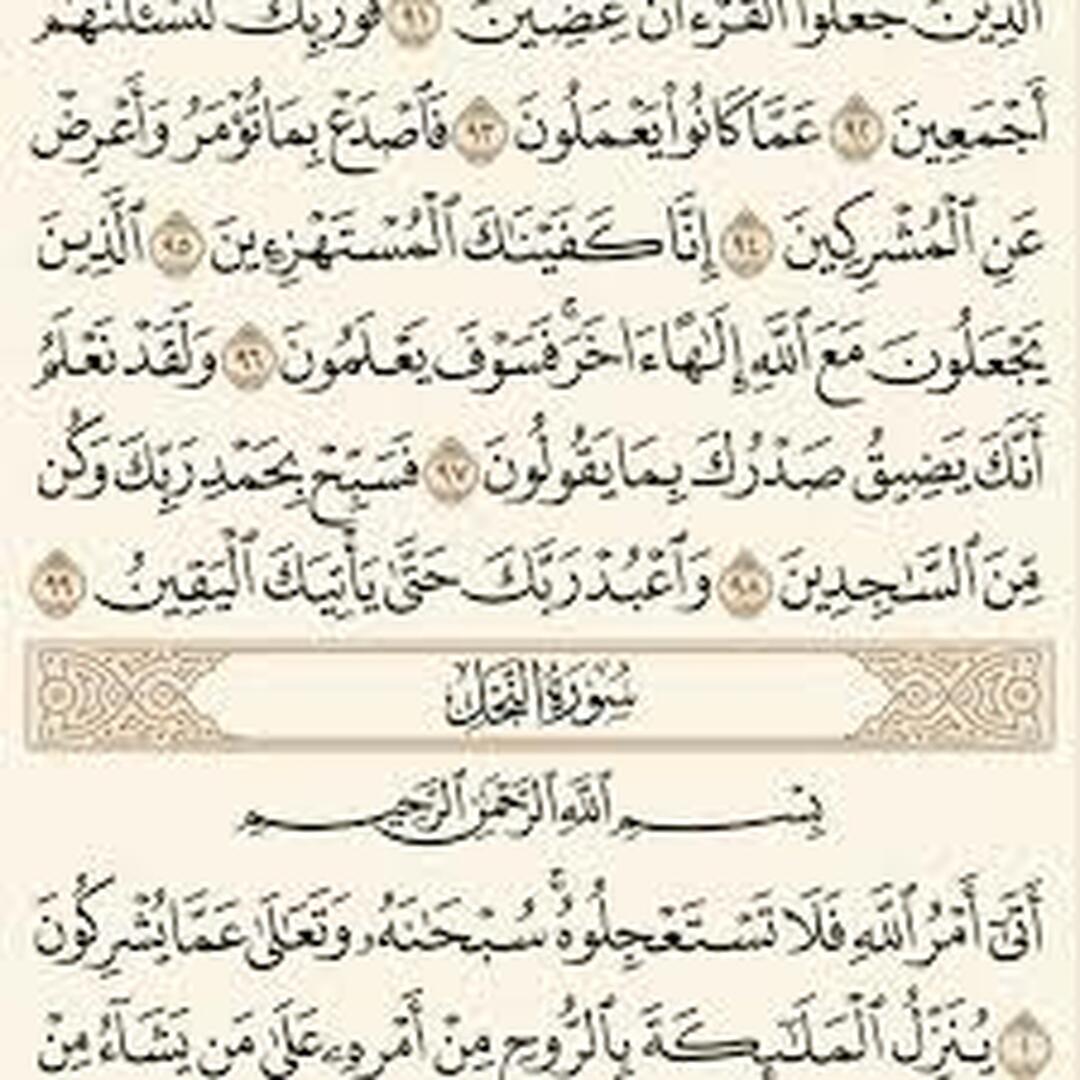 ٱلَّذِينَ جَعَلُوا۟ ٱلْقُرْءَانَ عِضِينَ ٩١ فَوَرَبِّكَ لَنَسْـَٔلَنَّهُمْ
أَجْمَعِينَ ٩٢ عَمَّا كَانُوا۟ يَعْمَلُونَ ٩٣ فَٱصْدَعْ بِمَا تُؤْمَرُ وَأَعْرِضْ
عَنِ ٱلْمُشْرِكِينَ ٩٤ إِنَّا كَفَيْنَـٰكَ ٱلْمُسْتَهْزِءِينَ ٩٥ ٱلَّذِينَ
يَجْعَلُونَ مَعَ ٱللَّهِ إِلَـٰهًا ءَاخَرَ ۚ فَسَوْفَ يَعْلَمُونَ ٩٦ وَلَقَدْ نَعْلَمُ
أَنَّكَ يَضِيقُ صَدْرُكَ بِمَا يَقُولُونَ ٩٧ فَسَبِّحْ بِحَمْدِ رَبِّكَ وَكُن
مِّنَ ٱلسَّـٰجِدِينَ ٩٨ وَٱعْبُدْ رَبَّكَ حَتَّىٰ يَأْتِيَكَ ٱلْيَقِينُ ٩٩
سُورَةُ النَّحْلِ
بِسْمِ ٱللَّهِ ٱلرَّحْمَـٰنِ ٱلرَّحِيمِ
أَتَىٰٓ أَمْرُ ٱللَّهِ فَلَا تَسْتَعْجِلُوهُ ۚ سُبْحَـٰنَهُۥ وَتَعَـٰلَىٰ عَمَّا يُشْرِكُونَ
١ يُنَزِّلُ ٱلْمَلَـٰٓئِكَةَ بِٱلرُّوحِ مِنْ أَمْرِهِۦ عَلَىٰ مَن يَشَآءُ مِنْ